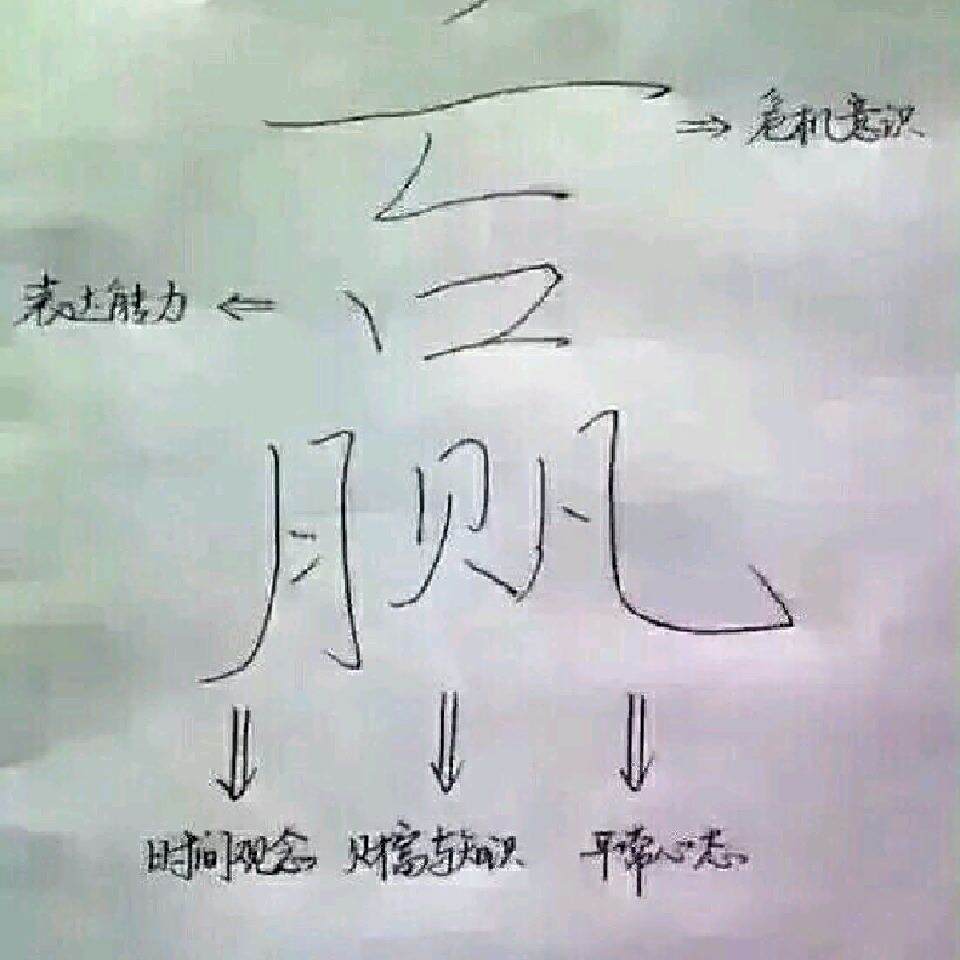 赢
危机意识
表达能力
时间观念 财富与知识 平常心态